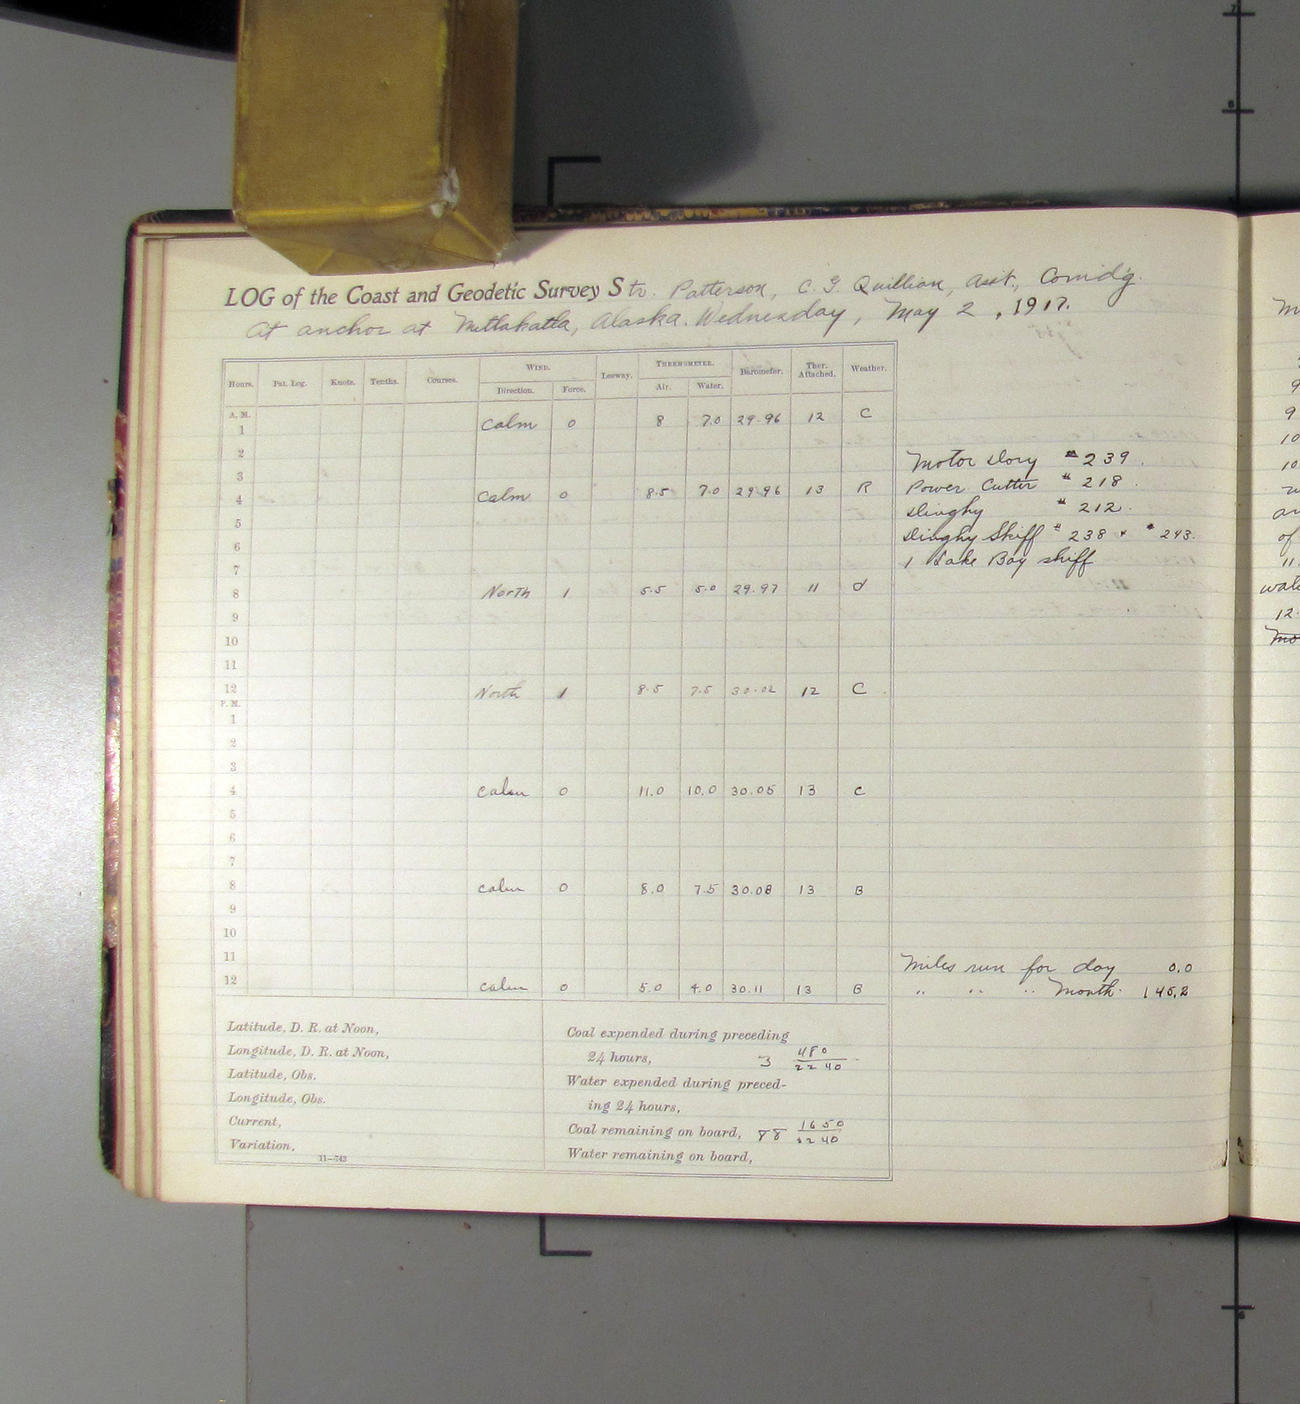 LOG of the Coast and Geodetic Survey Str. Patterson, C. G. Quillian, Asst., Comd'g.
At anchor at Metlakatla, Alaska. Wednesday, May 2, 1917.
Hours. Pat. Log. Knots. Tenths. Courses. WIND. Leeway. THERMOMETER. Barometer. Ther. Attached. Weather.
Direction. Force. Air. Water.
A. M.
1 Calm 0 8 7.0 29.96 12 C
2
3
4 Calm 0 8.5 7.0 29.96 13 R
5
6
7
8 North 1 5.5 5.0 29.97 11 d
9
10
11
12 North 1 8.5 7.5 30.02 12 C
P. M.
1
2
3
4 Calm 0 11.0 10.0 30.05 13 C
5
6
7
8 Calm 0 8.0 7.5 30.08 13 B
9
10
11
12 Calm 0 5.0 4.0 30.11 13 B
Motor Dory # 239.
Power Cutter # 218.
Dinghy # 212.
Dinghy Skiff # 238 + # 243.
1 Lake Bay skiff
Miles run for day 0.0
" " " Month. 145.2
Latitude, D. R. at Noon,
Longitude, D. R. at Noon,
Latitude, Obs.
Longitude, Obs.
Current,
Variation,
11—743
Coal expended during preceding
24 hours, 3 480/2240
Water expended during preced-
ing 24 hours,
Coal remaining on board, 88 1650/2240
Water remaining on board,